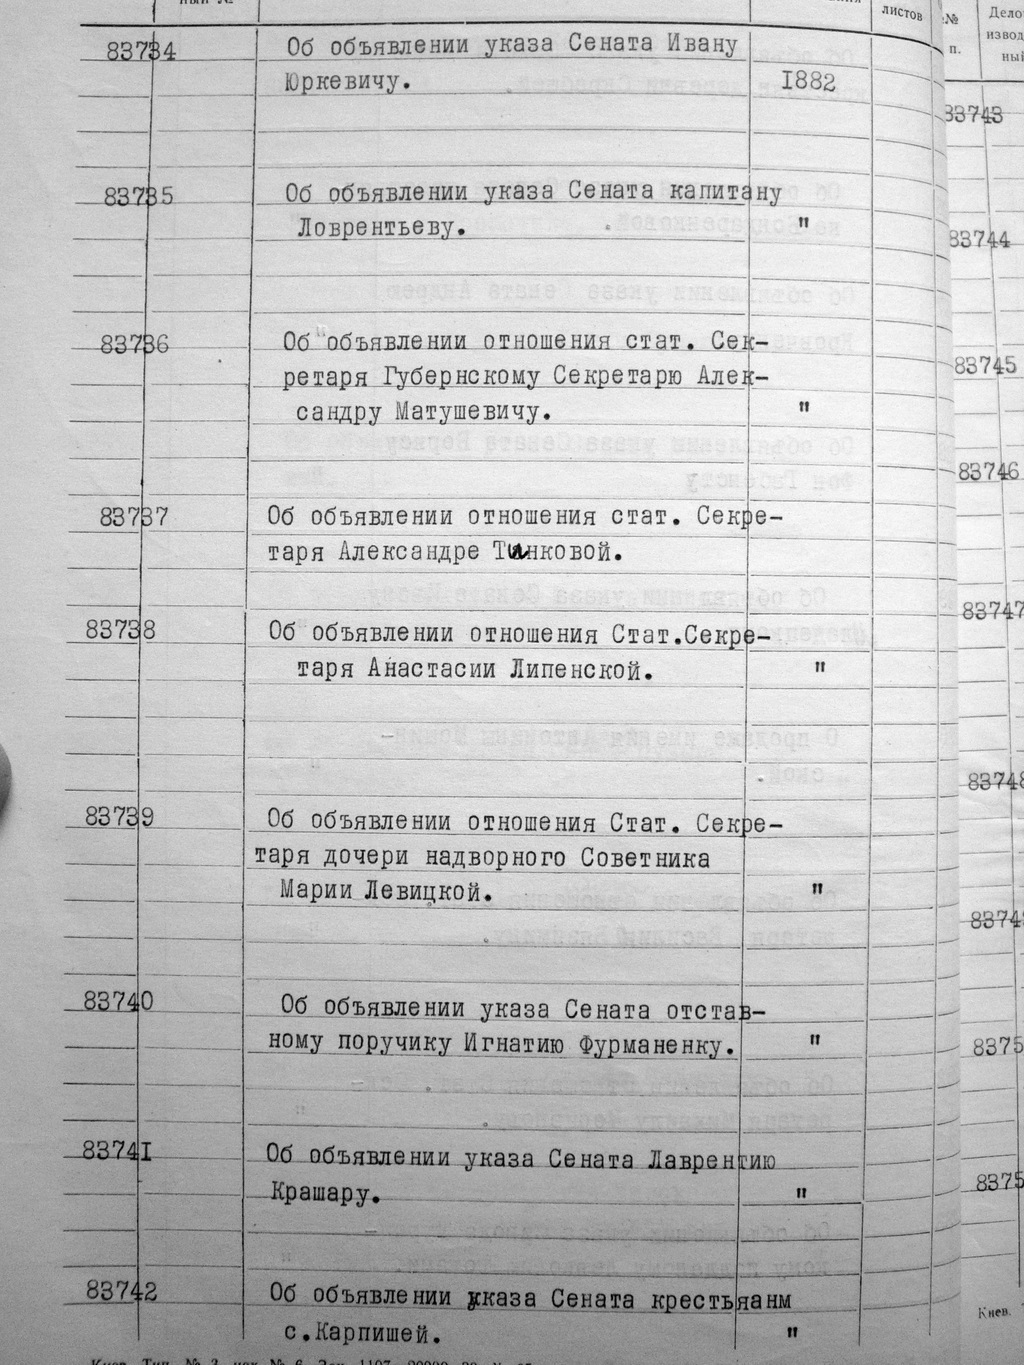 листов
83734 Об объявлении указа Сената Ивану
Юркевичу. 1882
83735 Об объявлении указа Сената капитану
Ловрентьеву. "
83736 Об объявлении отношения стат. Сек-
ретаря Губернскому Секретарю Алек-
сандру Матушевичу. "
83737 Об объявлении отношения стат. Секре-
таря Александре Танковой.
83738 Об объявлении отношения Стат.Секре-
таря Анастасии Липенской. "
83739 Об объявлении отношения Стат. Секре-
таря дочери надворного Советника
Марии Левицкой. "
83740 Об объявлении указа Сената отстав-
ному поручику Игнатию Фурманенку. "
83741 Об объявлении указа Сената Лаврентию
Крашару. "
83742 Об объявлении указа Сената крестьянам
с.Карпишей. "
№
п.
83743
83744
83745
83746
83747
83748
8375
8375
Киев.